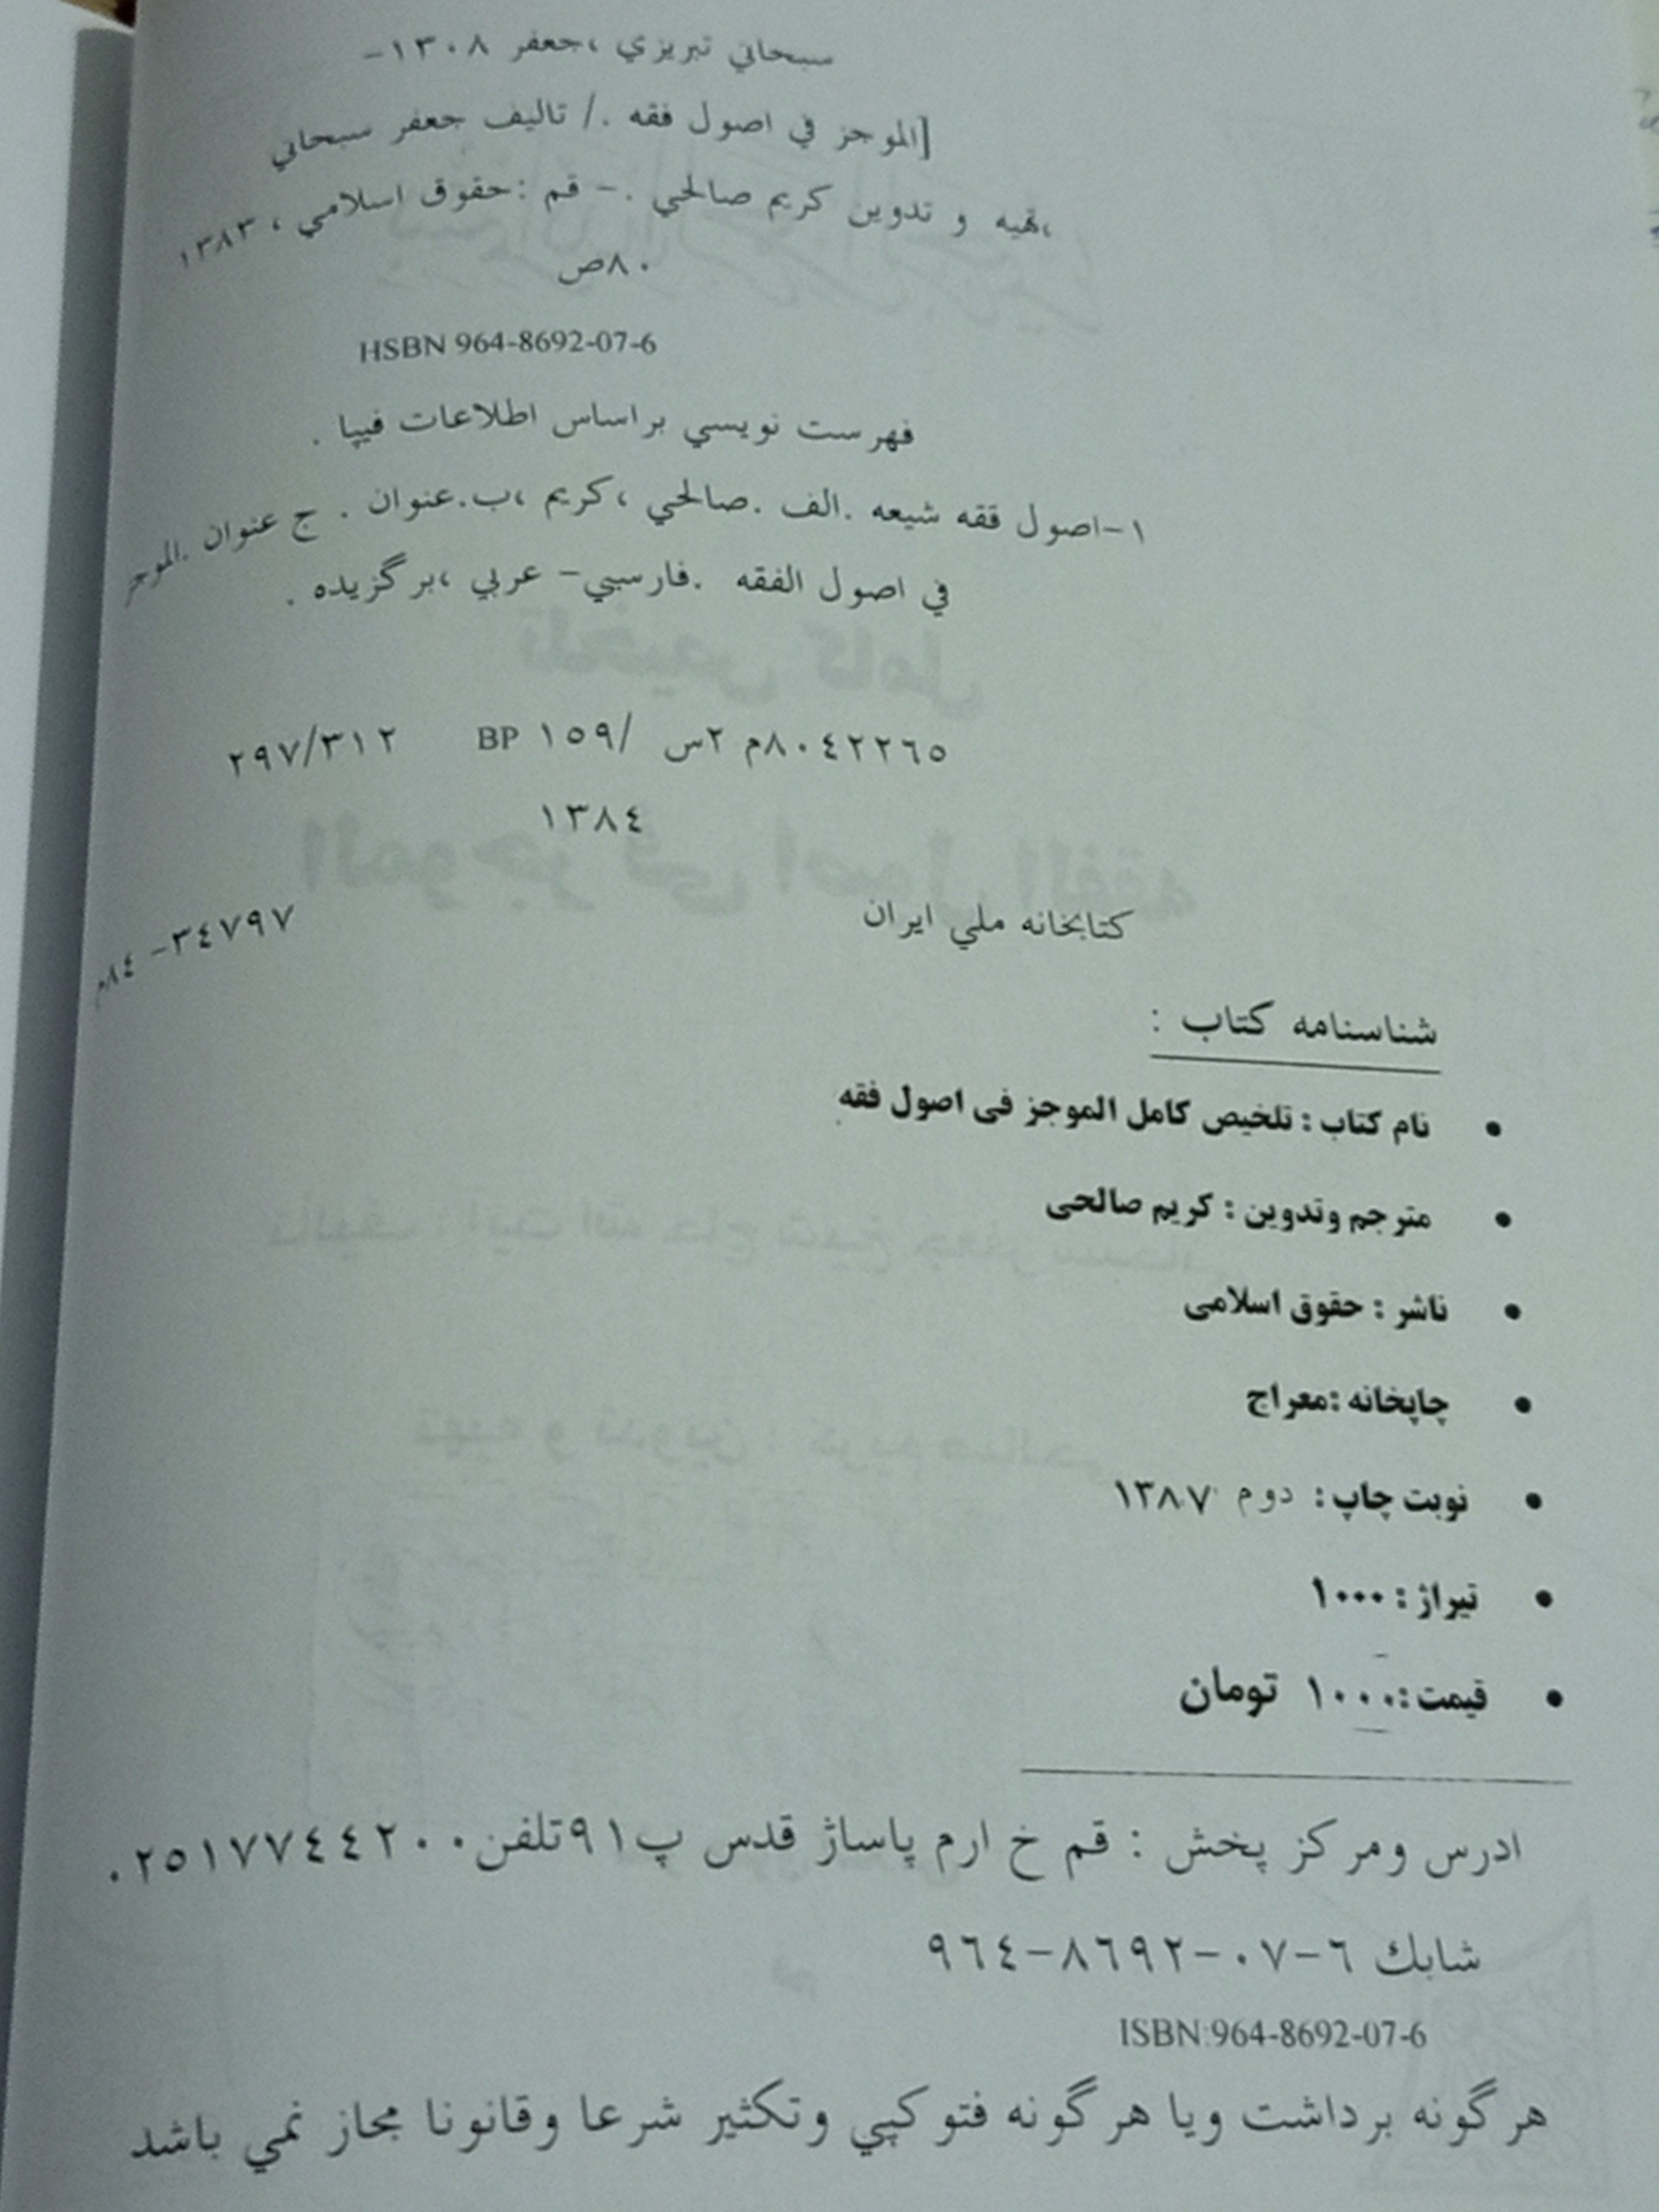 سبحاني تبريزي ،جعفر ١٣٠٨-
[الموجز في اصول فقه ./ تاليف جعفر سبحاني
،تهيه و تدوين كريم صالحي .- قم :حقوق اسلامي ، ١٣٨٣
٨٠ص
HSBN 964-8692-07-6
فهرست نويسي براساس اطلاعات فيپا .
١-اصول فقه شيعه .الف .صالحي ،كريم ،ب.عنوان . ج عنوان .الموجز
في اصول الفقه .فارسيي- عربي ،برگزيده .
٢٩٧/٣١٢ BP ١٥٩/ ٨٠٤٢٢٦٥م ٢س
١٣٨٤
كتابخانه ملي ايران ٣٤٧٩٧- ٨٤م
شناسنامه كتاب :
• نام کتاب : تلخیص کامل الموجز فی اصول فقه
• مترجم وتدوین : کریم صالحی
• ناشر : حقوق اسلامی
• چاپخانه :معراج
• نوبت چاپ : دوم ١٣٨٧
• تیراژ : ١٠٠٠
• قیمت :١٠٠٠ تومان
ادرس ومركز پخش : قم خ ارم پاساژ قدس پ٩١تلفن٠٢٥١٧٧٤٤٢٠٠
شابك ٦-٠٧-٨٦٩٢-٩٦٤
ISBN:964-8692-07-6
هرگونه برداشت ويا هرگونه فتوكپي وتكثير شرعا وقانونا مجاز نمي باشد